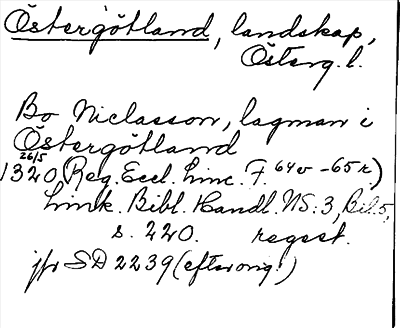 Östergötland, landskap,
Österg. l.
Bo Niclasson, lagman i
Östergötland
26/5
1320 (Reg. Eccl. Linc. F. 64v-65r)
Link. Bibl. Handl. NS: 3, Bil. 5,
s. 220. regest.
jfr SD 2239 (efter orig.)